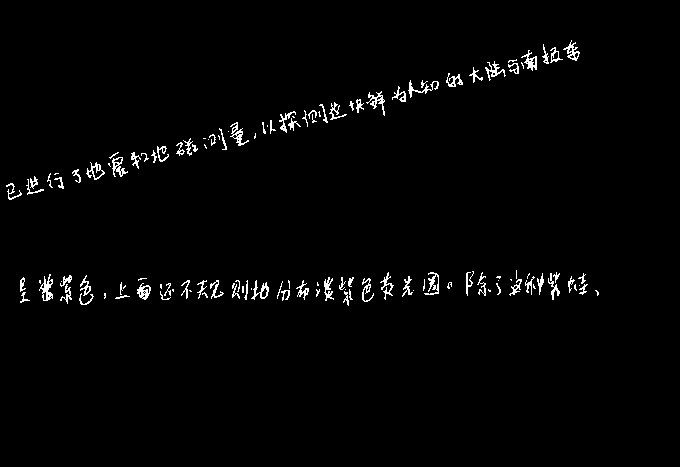 已进行了地震和地磁测量,以探测这块鲜为人知的大陆与南极东
是酱紫色,上面还不规则地分布淡紫色荧光圈。除了这种紫蛙、